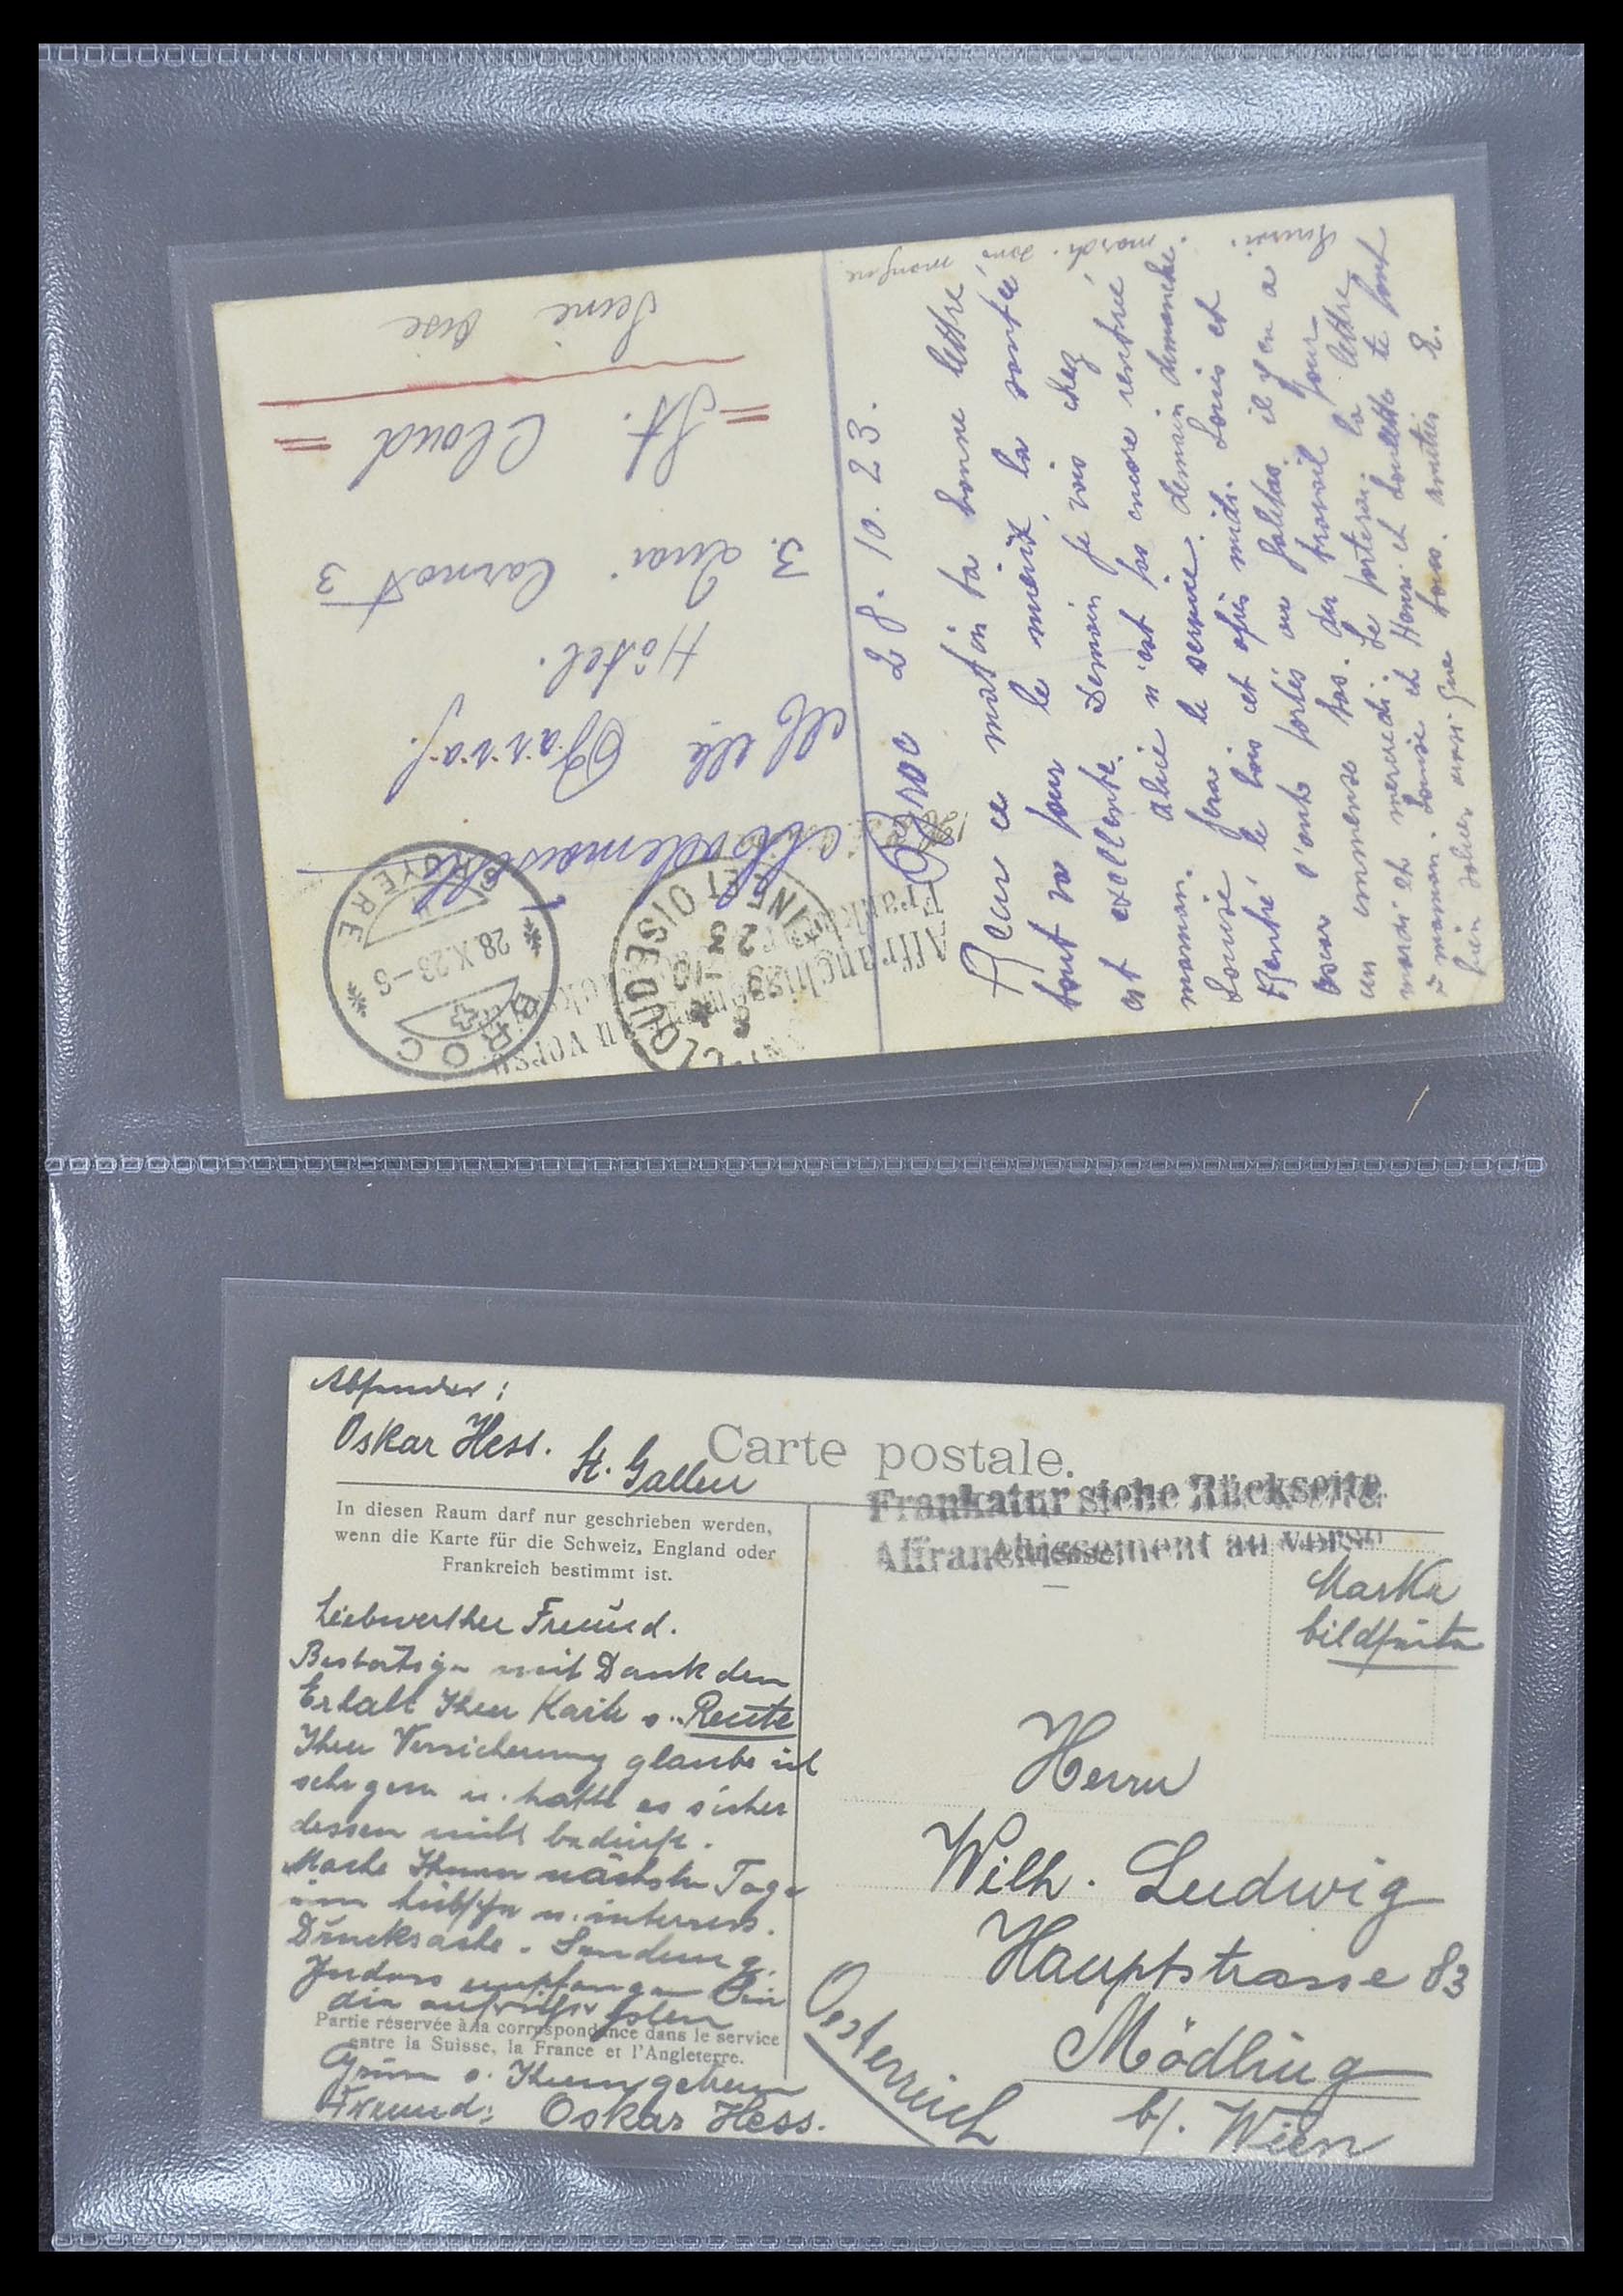 Mademoiselle
Melle Barras.
Hôtel.
3. Quai Carnot 3
St. Cloud
Seine Oise
BROC
28.X.23-8
(GRUYERE)
SEINE ET OISE
23
Frankatur siehe Rückseite
Affranchissement au verso
Broc 28.10.23.
Reçu ce matin ta bonne lettre
tout va pour le mieux, la santée
est excellente. Demain je vais chez
maman. Aline n'est pas encore rentrée
Louise fera le service. demain dimanche
Rentré le bois cet après midi. Louis et
Oscar s'sont portés au galetas. il y en a
un immense tas. du travail pour
mardi et mercredi. Je porterai la lettre
à maman. Louise et Henri et te font
bien saluer ainsi que tous. amitiés
Absender:
Oskar Hess. St. Gallen
Carte postale.
Frankatur siehe Rückseite
Affranchissement au verso
In diesen Raum darf nur geschrieben werden,
wenn die Karte für die Schweiz, England oder
Frankreich bestimmt ist.
Marke
bildseite
Liebwerther Freund.
Bestätige mit Dank den
Erhalt Ihrer Karte v. Reute
Ihrer Versicherung glaube ich
sehr gern u. hätte es sicher
dessen nicht bedurft.
Mache Ihnen nächster Tage
eine hübsche u. interress.
Drucksache-Sendung.
Indess empfangen Sie
die aufrichtigsten
Partie réservée à la correspondance dans le service
entre la Suisse, la France et l'Angleterre.
Grüsse v. Ihrem
Freund: Oskar Hess.
Herrn
Wilh. Ludwig
Hauptstrasse 83
Mödling
b/. Wien
Oesterreich